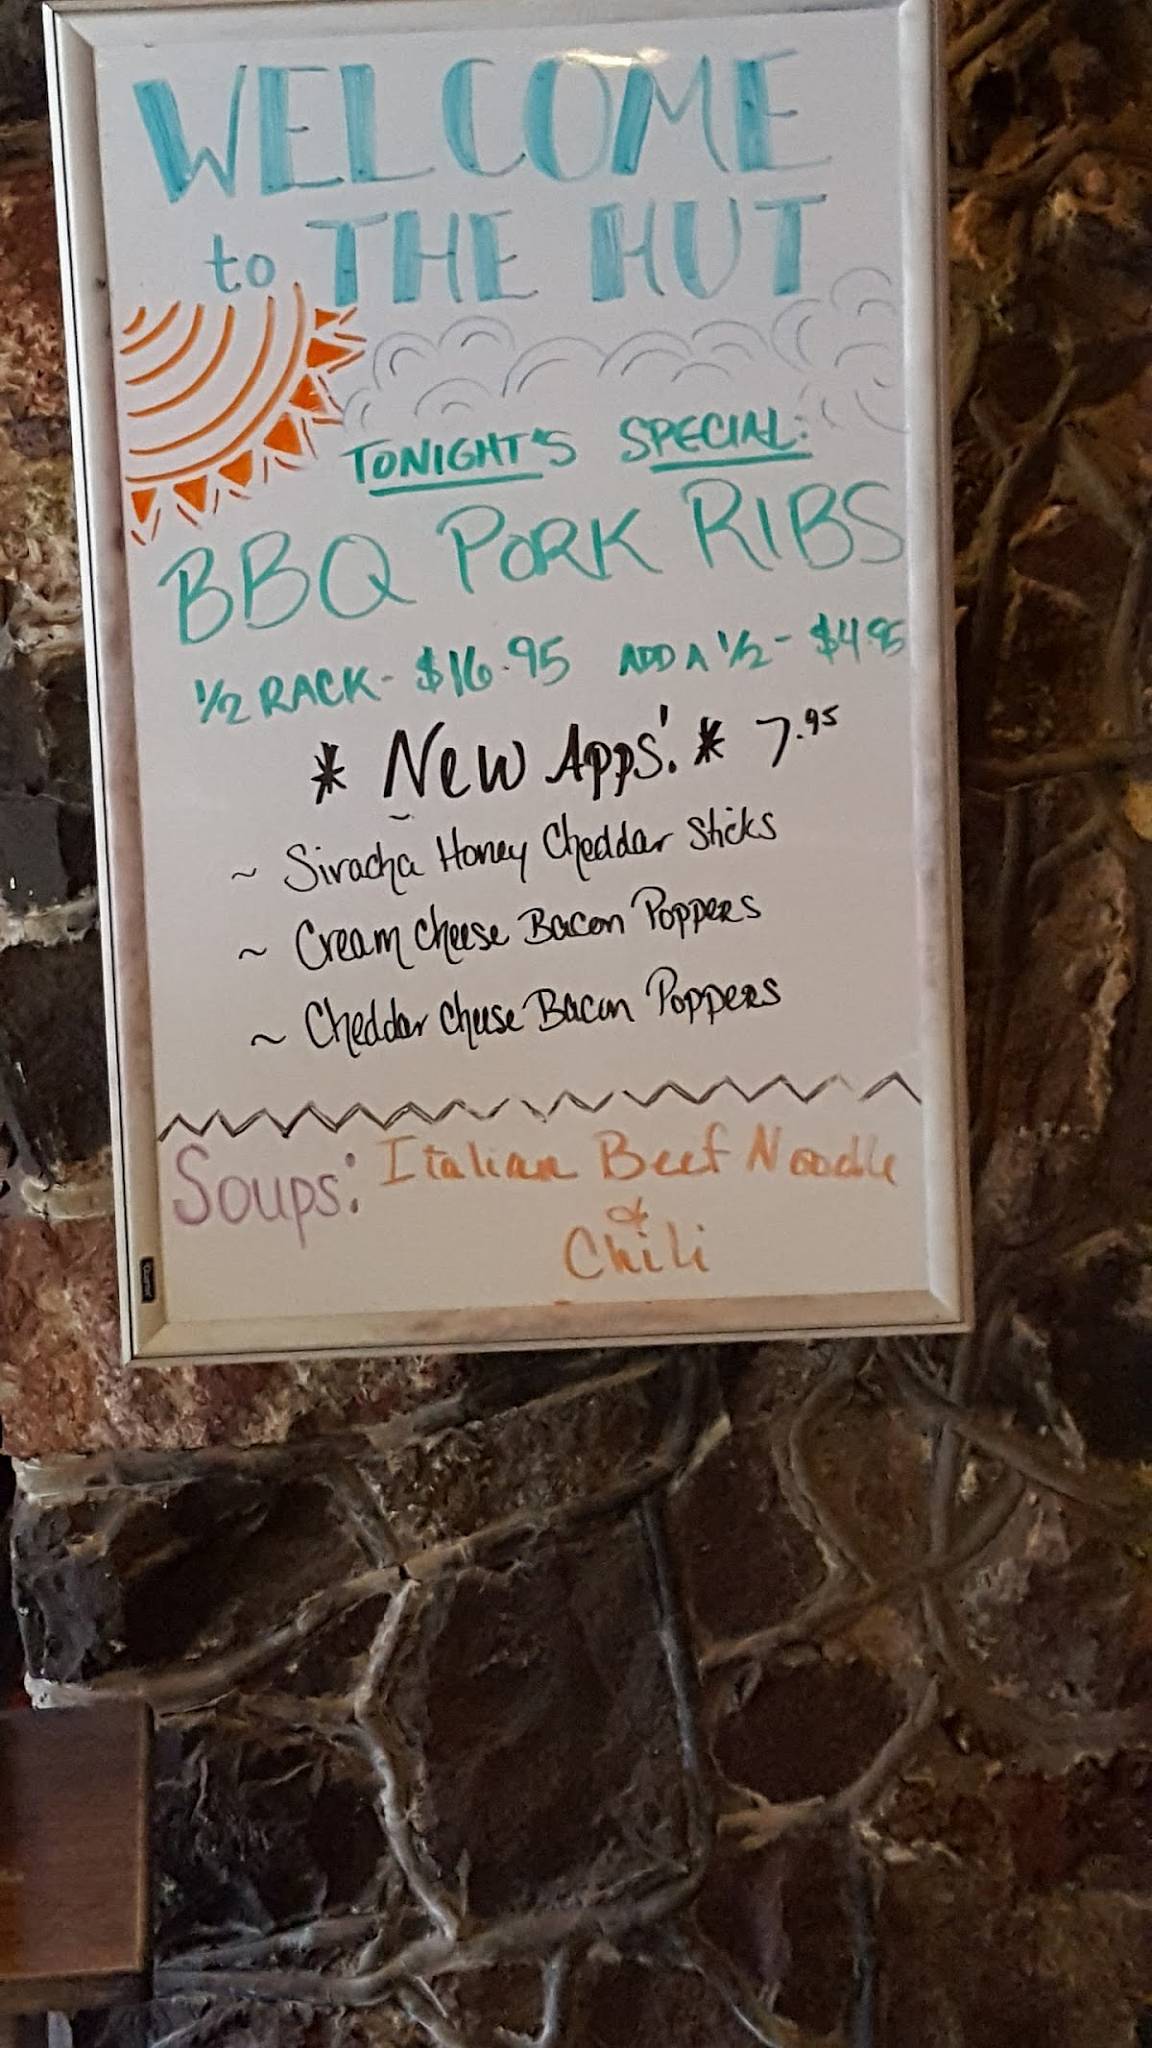 WELCOME
to THE HUT
TONIGHT'S SPECIAL:
BBQ PORK RIBS
1/2 RACK - $16.95 ADD A 1/2 - $4.95
* New Apps! * 7.95
~ Siracha Honey Cheddar Sticks
~ Cream Cheese Bacon Poppers
~ Cheddar Cheese Bacon Poppers
Soups: Italian Beef Noodle
&
Chili